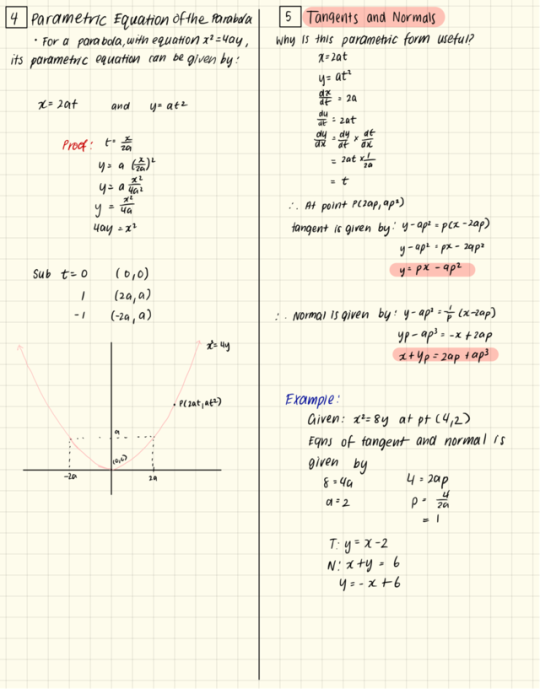 4 Parametric Equation of the Parabola
• For a parabola, with equation x² = 4ay,
its parametric equation can be given by:
x = 2at and y = at²
Proof: t = x/2a
y = a (x/2a)²
y = a x²/4a²
y = x²/4a
4ay = x²
Sub t = 0 (0,0)
1 (2a, a)
-1 (-2a, a)
x² = 4y
P(2at, at²)
a
(0,0)
-2a 2a
5 Tangents and Normals
Why is this parametric form useful?
x = 2at
y = at²
dx/dt = 2a
dy/dt = 2at
dy/dx = dy/dt × dt/dx
= 2at × 1/2a
= t
∴ At point P(2ap, ap²)
tangent is given by: y - ap² = p(x - 2ap)
y - ap² = px - 2ap²
y = px - ap²
∴ Normal is given by: y - ap² = 1/p (x - 2ap)
yp - ap³ = -x + 2ap
x + yp = 2ap + ap³
Example:
Given: x² = 8y at pt (4,2)
Eqns of tangent and normal is
given by
8 = 4a 4 = 2ap
a = 2 p = 4/2a
= 1
T: y = x - 2
N: x + y = 6
y = -x + 6